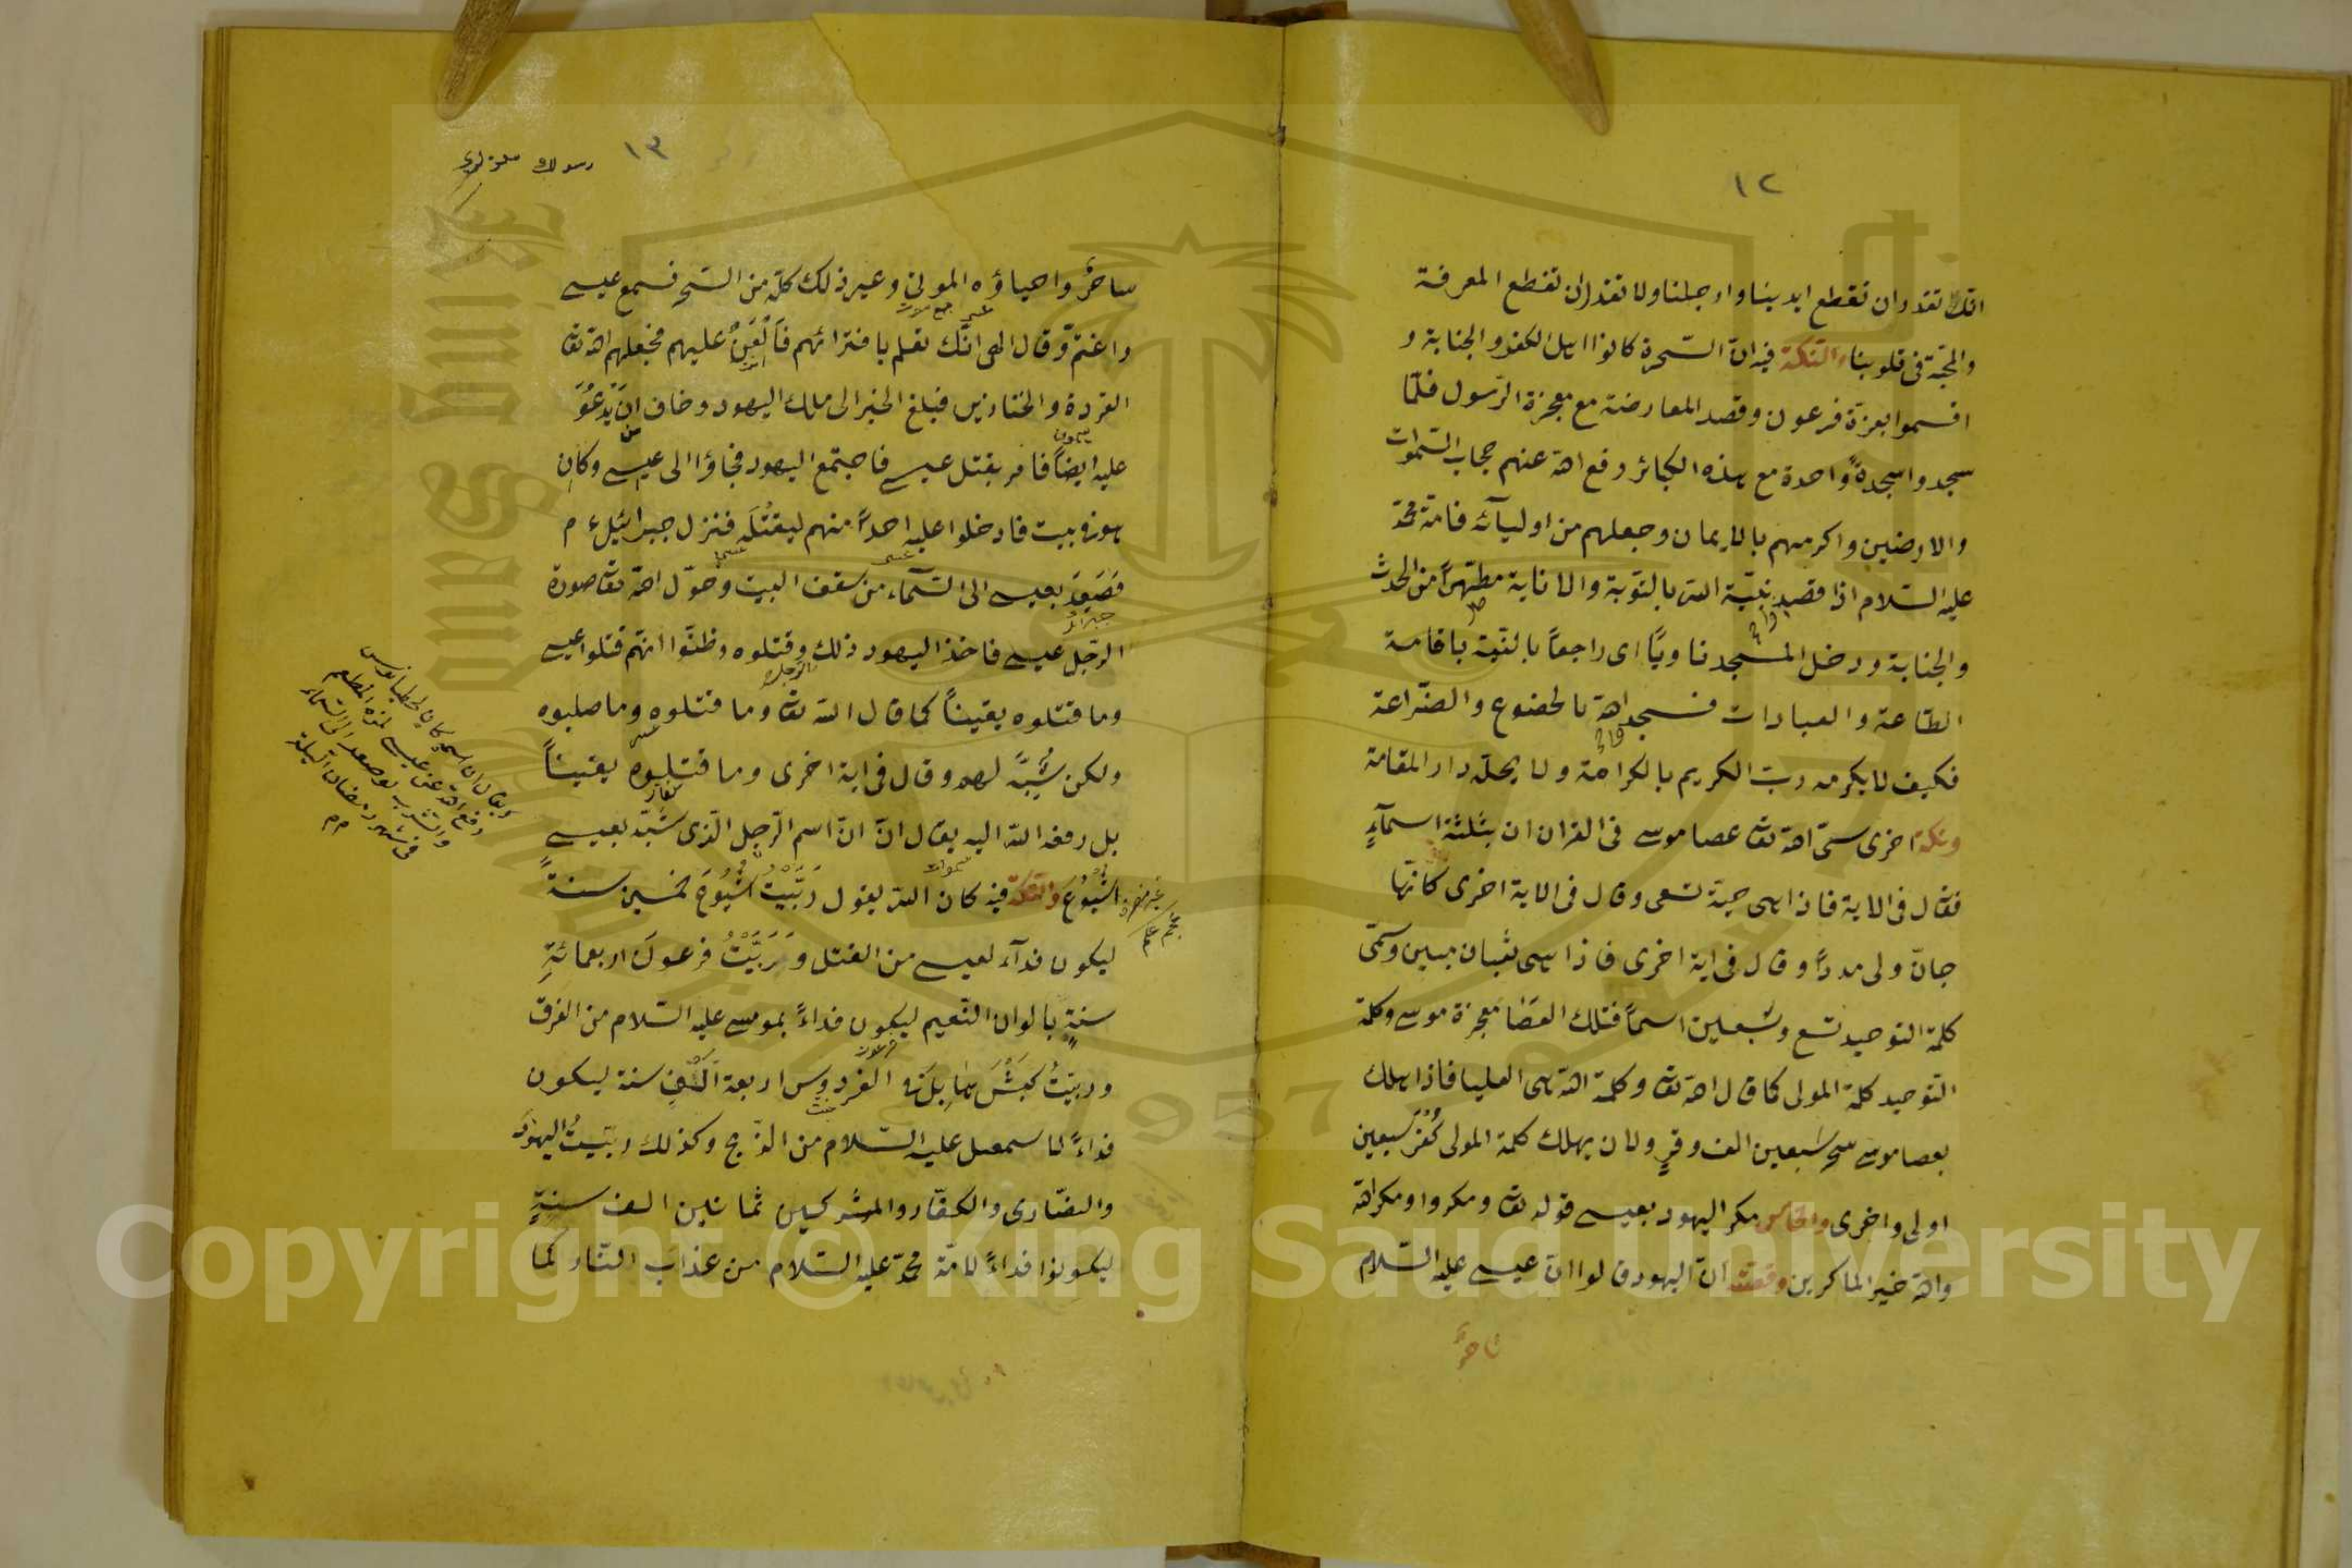 ١٢
انك تقدر ان تقطع ايدينا وارجلنا ولا تقدر ان تقطع المعرفة
والمحبّة فى قلوبنا والنكتة فيه انّ السّحرة كانوا اهل الكفر والجنابة و
اقسموا بعزّة فرعون وقصد المعارضة مع معجزة الرّسول فلمّا
سجدوا سجدةً واحدة مع هذه الكبائر رفع الله عنهم حجاب السّموات
والارضين واكرمهم بالايمان وجعلهم من اوليآئه فامّة محمّد
عليه السّلام اذا قصد بنيّة التوبة والانابة مطهّراً من الحدث
والجنابة ودخل المسجد ناويًا اى راجعاً بالنّية باقامة
الطّاعة والعبادات فسجد الله بالخضوع والضّراعة
فكيف لا يكرمه ربّ الكريم بالكرامة ولا يحلّه دار المقامة
ونكتة اخرى سمّى الله تعالى عصا موسى فى القران ان بثلثة اسمآءٍ
فقال فى الاية فاذا هى حية تسعى وقال فى الاية اخرى كانّها
جانّ ولى مدبراً وقال فى اية اخرى فاذا هى ثعبان مبين وسمّى
كلمة التوحيد تسع وتسعين اسماً فتلك العصا معجزة موسى وكلمة
التوحيد كلمة المولى كما قال الله تعالى وكلمة الله هى العليا فاذا اهلك
بعصا موسى سحر سبعين الف وقرٍ ولان يهلك كلمة المولى كُفْرَ سبعين
اولى واخرى والخامس مكر اليهود بعيسى قوله تعالى ومكروا ومكر الله
والله خير الماكرين وقصّته انّ اليهود قالوا انّ عيسى عليه السّلام
ساحرٌ
١٣
ساحرٌ واحياؤه الموتى وغير ذلك كلّه من السّحر فسمع عيسى
واغتمّ وقال الهى انّك تعلم بافترائهم فالعن عليهم فجعلهم الله تعالى
القردة والخنازير فبلغ الخبر الى ملك اليهود وخاف ان يدعو
عليه ايضاً فامر بقتل عيسى فاجتمع اليهود فجاؤا الى عيسى وكان
هو فى بيت فادخلوا عليه احداً منهم ليقتله فنزل جبرائيل ءم
فصَعِدَ بعيسى الى السّمآء من سقف البيت وحوّل الله تعالى صورة
الرّجل عيسى فاخذ اليهود ذلك وقتلوه وظنّوا انّهم قتلوا عيسى
وما قتلوه يقيناً كما قال الله تعالى وما قتلوه وما صلبوه
ولكن شُبِّه لهم وقال فى اية اخرى وما قتلوه يقيناً
بل رفعه الله اليه يقال انّ انّ اسم الرّجل الّذى شبّه بعيسى
اشيوع والنكتة فيه كان الله يقول رَبَّيْتُ اشيوعَ خمسين سنةً
ليكون فدآء لعيسى من القتل ورَبَّيْتُ فرعون اربعمائةِ
سنةٍ بالوان النّعيم ليكون فداءً بموسى عليه السّلام من الغرق
وربيتُ كبش هابيل فى الفردوس اربعة الفِ سنة ليكون
فداءً لاسمعيل عليه السّلام من الذّبح وكذلك ربّيتُ اليهود
والنصّارى والكفّار والمشركين ثمانين الف سنةٍ
ليكونوا فداءً لامّة محمّد عليه السّلام من عذاب النّار كما